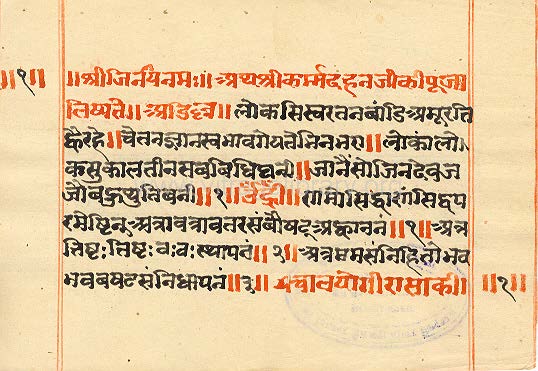 ॥१॥ ॥श्रीजिनायनमः॥ अथश्रीकर्म्मदहनजीकीपूजा
लिष्यते॥ अडिल्ल॥ लोकसिखरतनछांडिअमूरति
ह्वैरहे॥ चेतनज्ञानस्वभावगेयतेभिनभए॥ लोकालो
कसुकालतीनसबबिधिघनी॥ जानैसोजिनदेवज
जौबहुथुतिबनी॥१॥ उँह्रीं॥ णमोसिद्धाणंसिद्धप
रमेष्टिन्अत्रावत्रावतरसंवौषट्अह्वाननं॥१॥ अत्र
तिष्टःतिष्टःठःठःस्थापनं॥२॥ अत्रममसंनिहितोभव
भवबषटसंनिधापनं॥३॥ ॥१॥